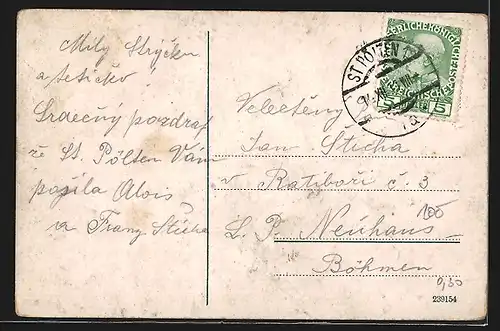 Milý Strýčku
a tetičko
Srdečný pozdraf
ze St. Pölten Vám
posila Alois
a Franz Sticha
ST. PÖLTEN
5
Velectěný
Jan Sticha
v Ratiboři č. 3
L. P. Neuhaus
Böhmen
100
0,50
239154